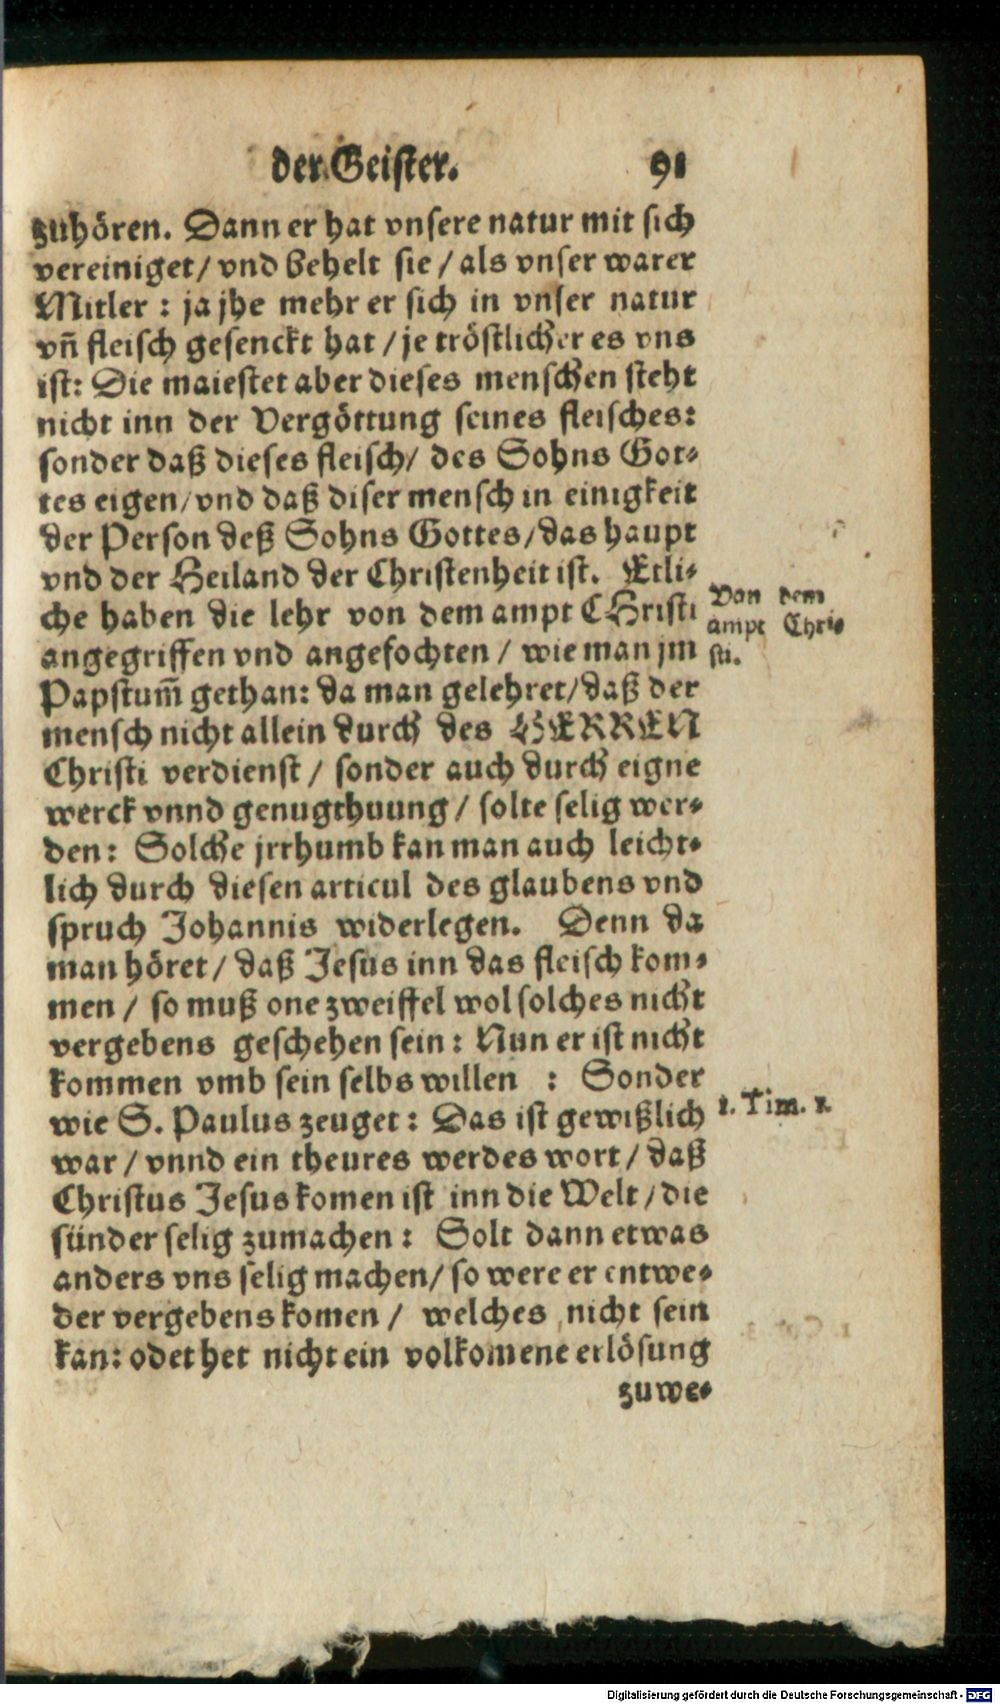 der Geister. 91
zuhören. Dann er hat vnsere natur mit sich
vereiniget/ vnd behelt sie / als vnser warer
Mitler : ja jhe mehr er sich in vnser natur
vñ fleisch gesenckt hat / je tröstlicher es vns
ist: Die maiestet aber dieses menschen steht
nicht inn der Vergöttung seines fleisches:
sonder daß dieses fleisch/ des Sohns Got-
tes eigen/ vnd daß diser mensch in einigkeit
der Person deß Sohns Gottes/ das haupt
vnd der Heiland der Christenheit ist. Etli-
che haben die lehr von dem ampt CHristi
angegriffen vnd angefochten / wie man jm
Papstum̃ gethan: da man gelehret/ daß der
mensch nicht allein durch des HERREN
Christi verdienst / sonder auch durch eigne
werck vnnd genugthuung / solte selig wer-
den: Solche jrrhumb kan man auch leicht-
lich durch diesen articul des glaubens vnd
spruch Johannis widerlegen. Denn da
man höret / daß Jesus inn das fleisch kom-
men / so muß one zweiffel wol solches nicht
vergebens geschehen sein : Nun er ist nicht
kommen vmb sein selbs willen : Sonder
wie S. Paulus zeuget : Das ist gewißlich
war / vnnd ein theures werdes wort / daß
Christus Jesus komen ist inn die Welt / die
sünder selig zumachen : Solt dann etwas
anders vns selig machen/ so were er entwe-
der vergebens komen / welches nicht sein
kan: odet het nicht ein volkomene erlösung
zuwe-
Von dem
ampt Chri-
sti.
1. Tim. 1.
Digitalisierung gefördert durch die Deutsche Forschungsgemeinschaft - DFG